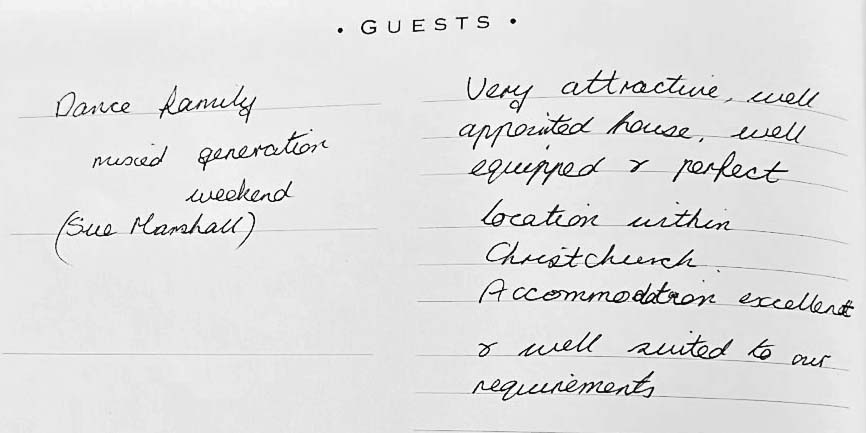 • GUESTS •
Dance family
mixed generation
weekend
(Sue Marshall)
Very attractive, well
appointed house, well
equipped & perfect
location within
Christchurch.
Accommodation excellent
& well suited to our
requirements